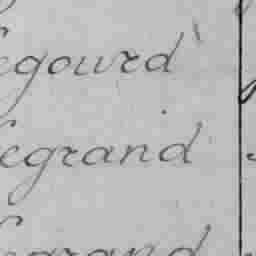 egourd
Legrand
egrand